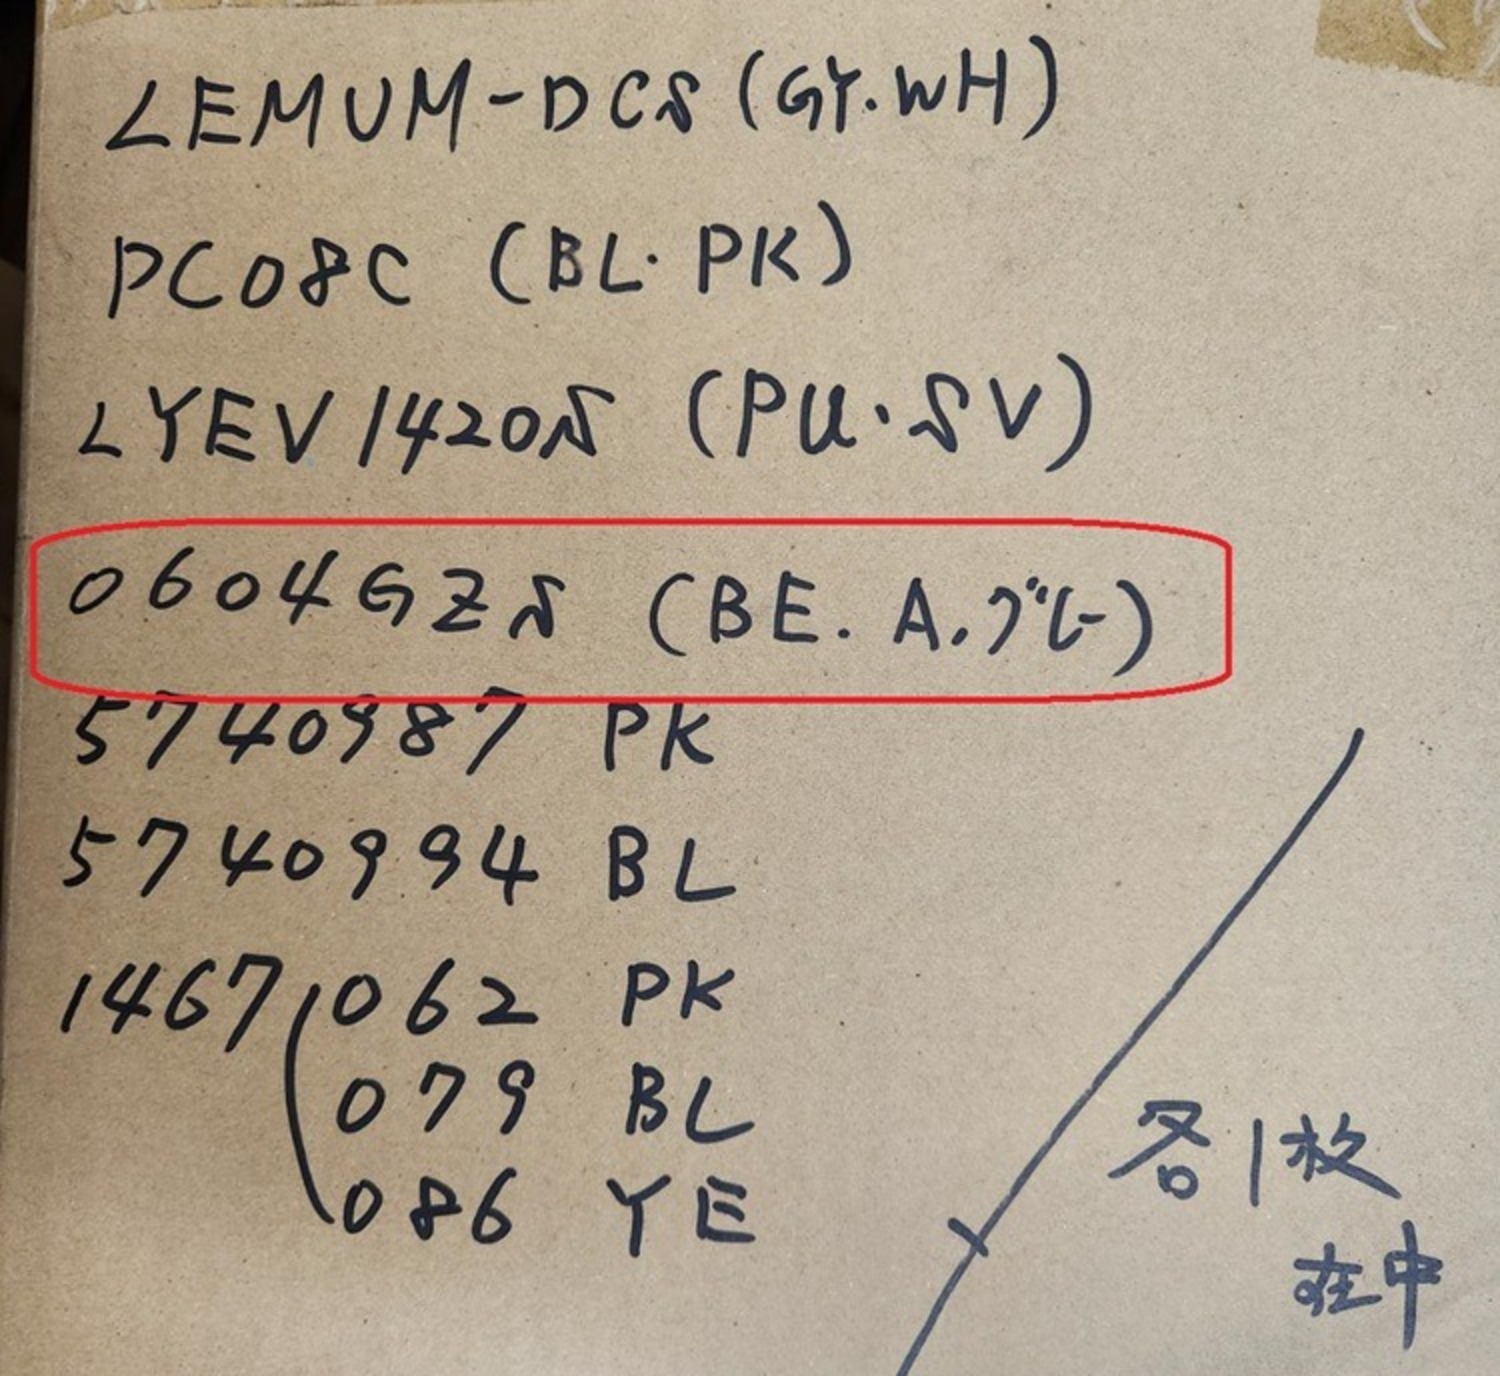 LEMUM-DCS (GY.WH)
PC08C (BL. PK)
LYEV1420S (PU.SV)
0604GZS (BE. A.グレー)
5740987 PK
5740994 BL
1467 062 PK
079 BL
086 YE
各1枚
在中